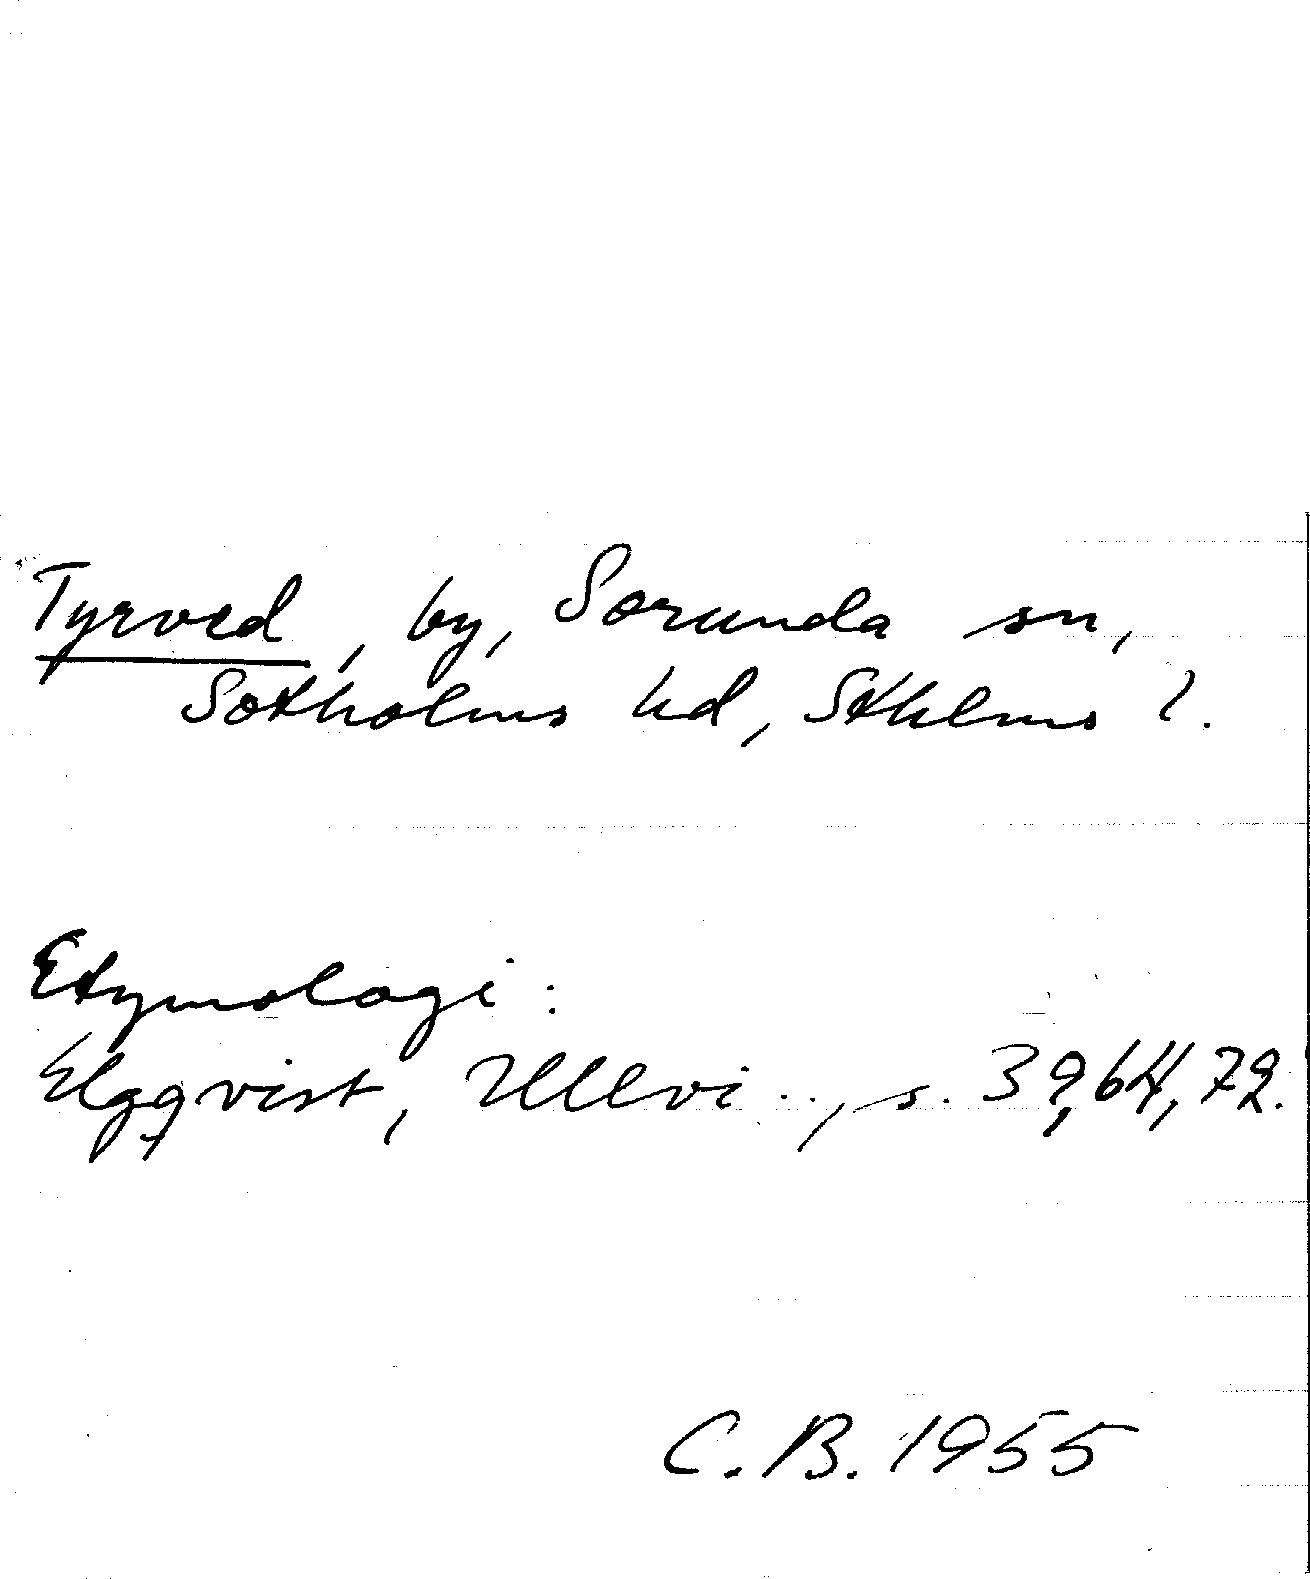 Tyrved, by, Sorunda sn,
Sotholms hd, Sthlms l.
Etymologi:
Elgqvist, Ullvi.., s. 39,64,72.
C.B. 1955